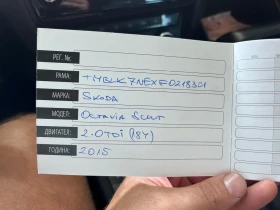 РЕГ. №:
РАМА: TMBLK7NEXF0218301
МАРКА: SKODA
МОДЕЛ: OCTAVIA SCOUT
ДВИГАТЕЛ: 2.0TDI (184)
ГОДИНА: 2015